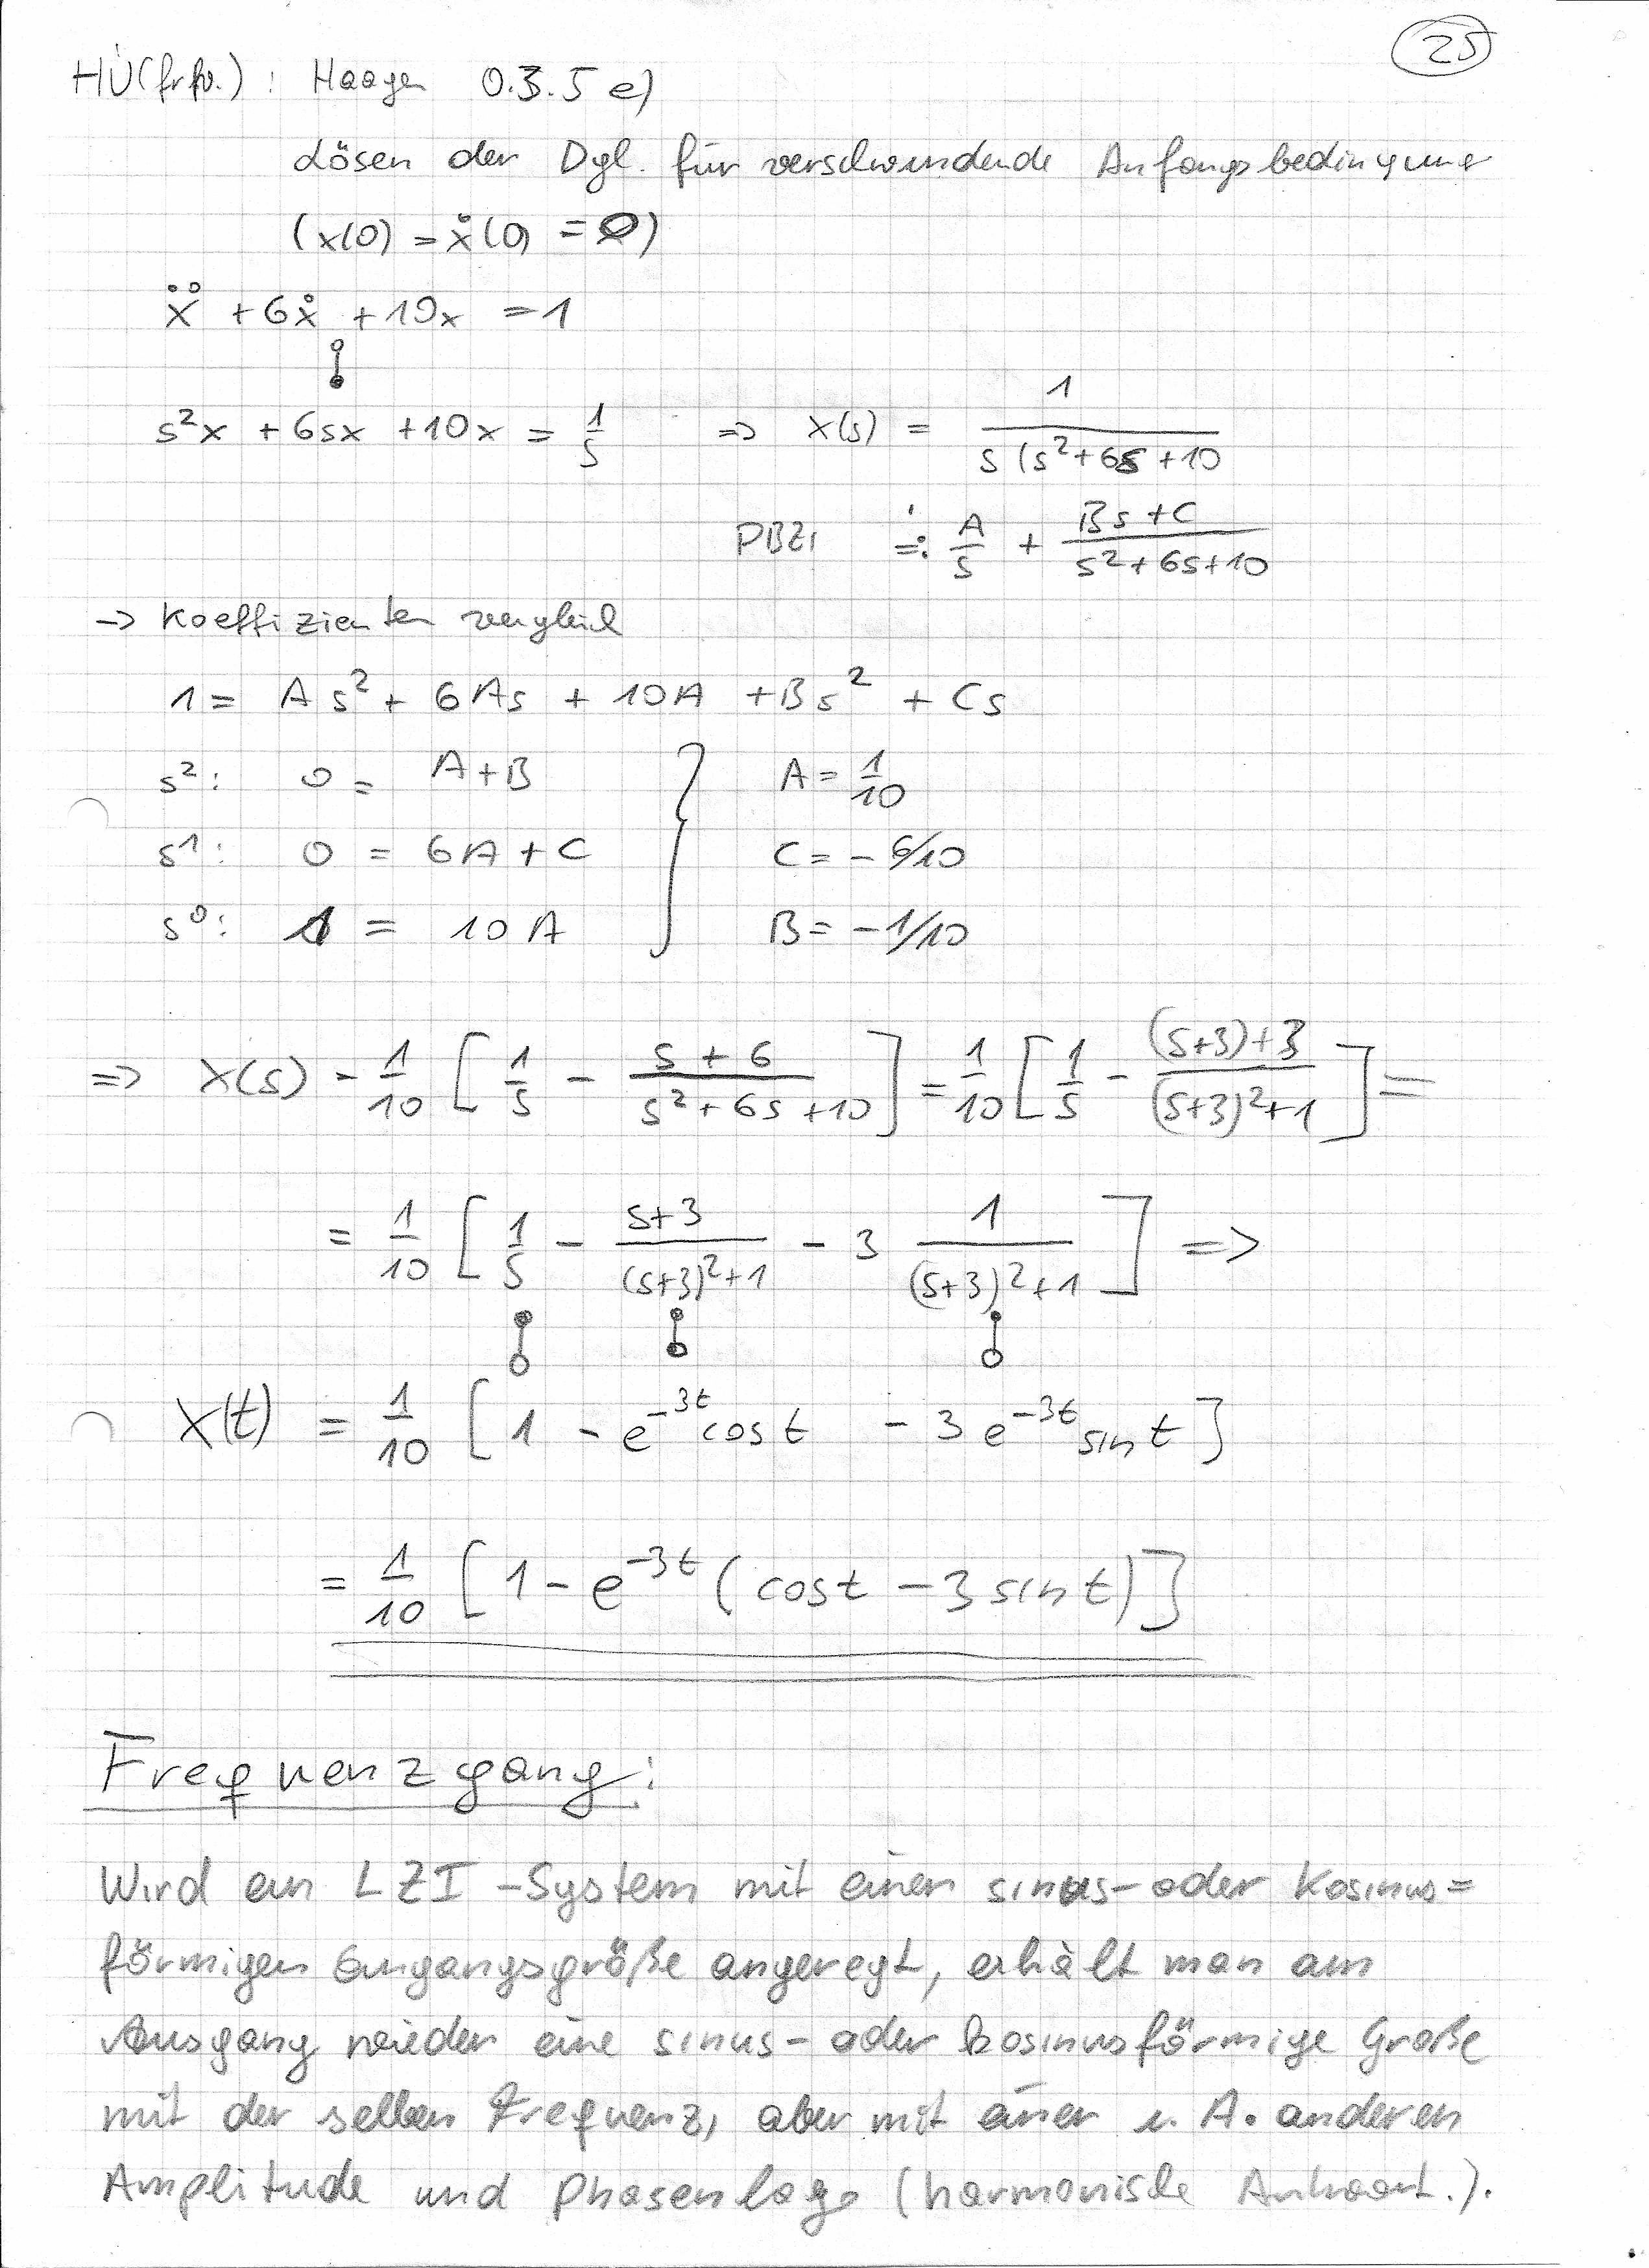 25
HÜ(frfw.): Haager 0.3.5 e)
Lösen der Dgl. für verschwindende Anfangsbedingung
(x(0) = ẋ(0) = 0)
ẍ + 6ẋ + 10x = 1
s²x + 6sx + 10x = 1/s => X(s) = 1/(s(s²+6s+10
PBZ: =: A/s + (Bs+C)/(s²+6s+10)
-> Koeffizientenvergleich
1 = As² + 6As + 10A + Bs² + Cs
s²: 0 = A+B } A = 1/10
s¹: 0 = 6A + C C = -6/10
s⁰: 1 = 10A B = -1/10
=> X(s) - 1/10 [1/s - (s+6)/(s²+6s+10)] = 1/10 [1/s - ((s+3)+3)/((s+3)²+1)] =
= 1/10 [1/s - (s+3)/((s+3)²+1) - 3 1/((s+3)²+1)] =>
X(t) = 1/10 [1 - e⁻³ᵗ cos t - 3 e⁻³ᵗ sin t]
= 1/10 [1 - e⁻³ᵗ (cos t - 3 sin t)]
Frequenzgang:
Wird ein LZI-System mit einer sinus- oder kosinus=
förmigen Eingangsgröße angeregt, erhält man am
Ausgang wieder eine sinus- oder kosinusförmige Größe
mit der selben Frequenz, aber mit einer i. A. anderen
Amplitude und Phasenlage (harmonische Antwort.).